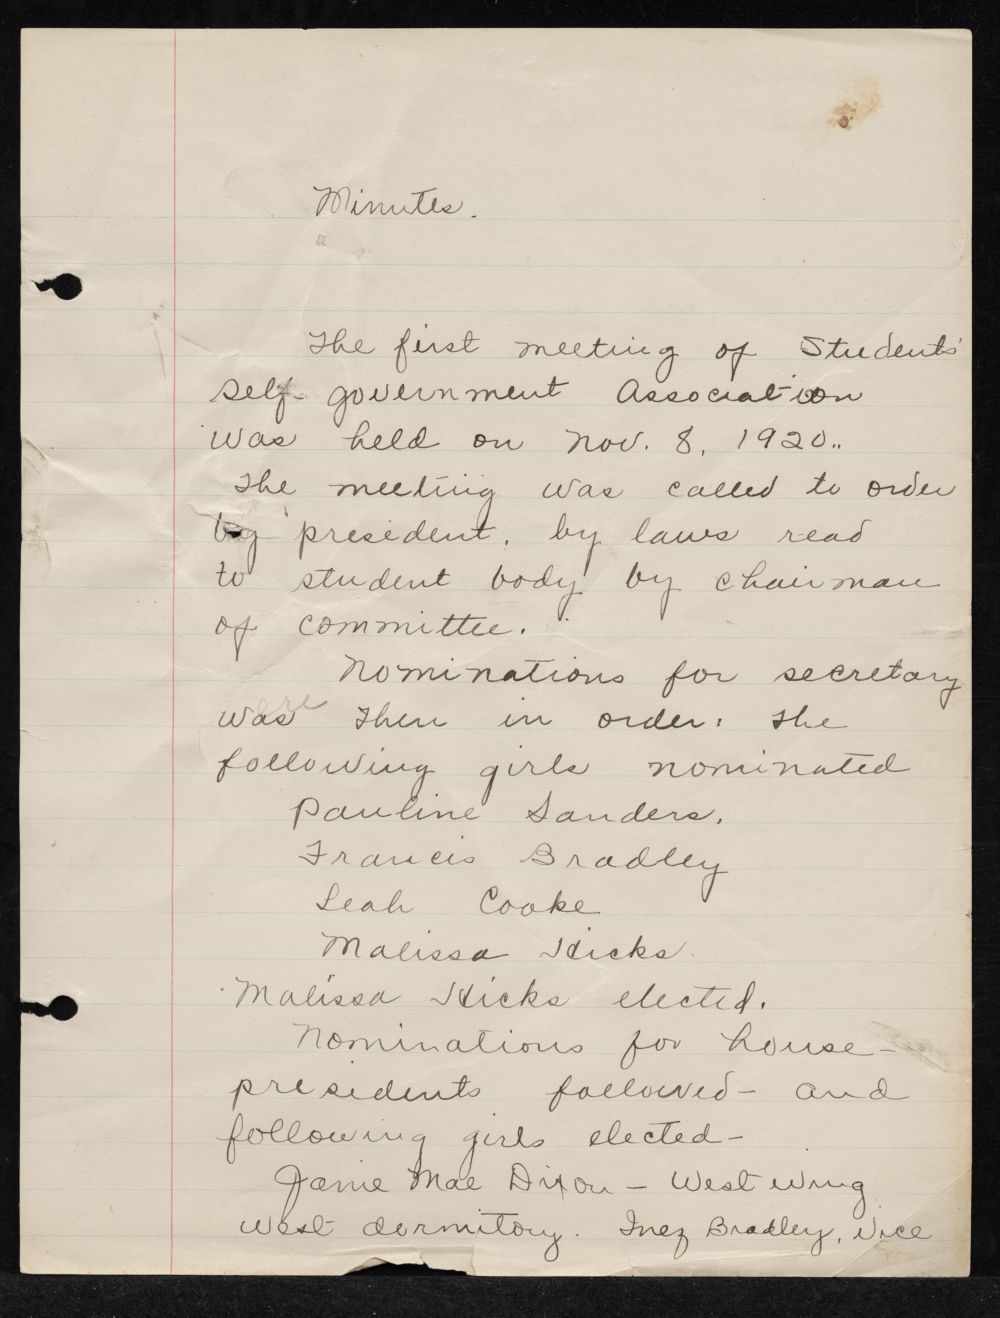 Minutes.
The first meeting of Students'
self-government Association
was held on Nov. 8, 1920..
The meeting was called to order
by president. by laws read
to student body by chairman
of committee.
Nominations for secretary
were
was then in order. The
following girls nominated
Pauline Sanders.
Francis Bradley
Leah Cooke
Malissa Hicks.
Malissa Hicks elected.
Nominations for house-
presidents followed - and
following girls elected -
Janie Mae Dixon - West wing
West dormitory. Inez Bradley, vice